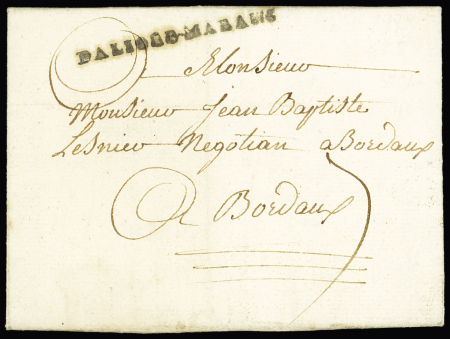 DALIGRE-MARANS
Monsieur
Monsieur Jean Baptiste
Lesnier Negotian a Bordaux
A Bordaux